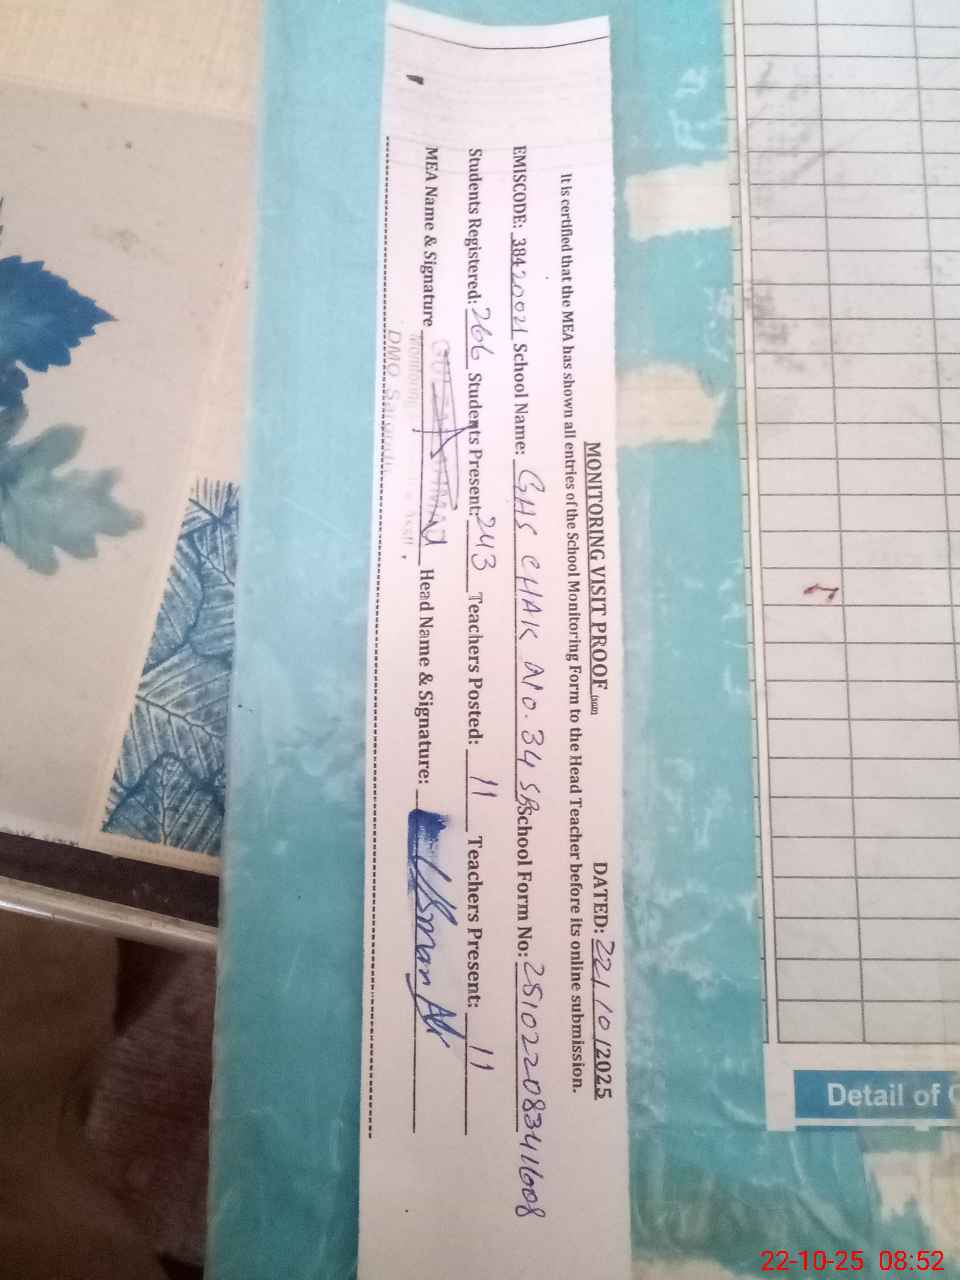 MONITORING VISIT PROOF DATED: 22/10/2025
It is certified that the MEA has shown all entries of the School Monitoring Form to the Head Teacher before its online submission.
EMISCODE: 38420021 School Name: GHS CHAK NO. 34 SB School Form No: 25102208341608
Students Registered: 266 Students Present: 243 Teachers Posted: 11 Teachers Present: 11
MEA Name & Signature Head Name & Signature: Usman Ali
Monitoring
DMO
Detail of
22-10-25 08:52